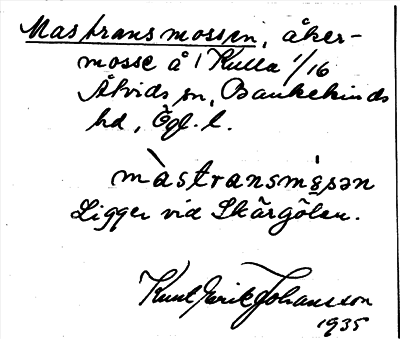 Mastransmossen, åker-
mosse å 1 Kulla 1/16
Åtvids sn, Bankekinds
hd, Ögl. l.
màstransmósən
Ligger vid Skärgölen.
Knut Erik Johansson
1935